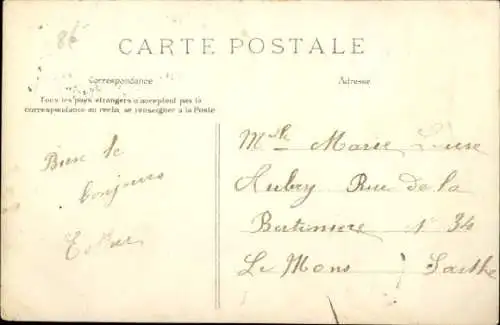 86
CARTE POSTALE
Correspondance
Adresse
Tous les pays étrangers n'acceptent pas la
correspondance au recto, se renseigner à la Poste
Bien le
bonjours
Mlle Marie Louise
Aubry Rue de la
N° 34
Le Mans Sarthe